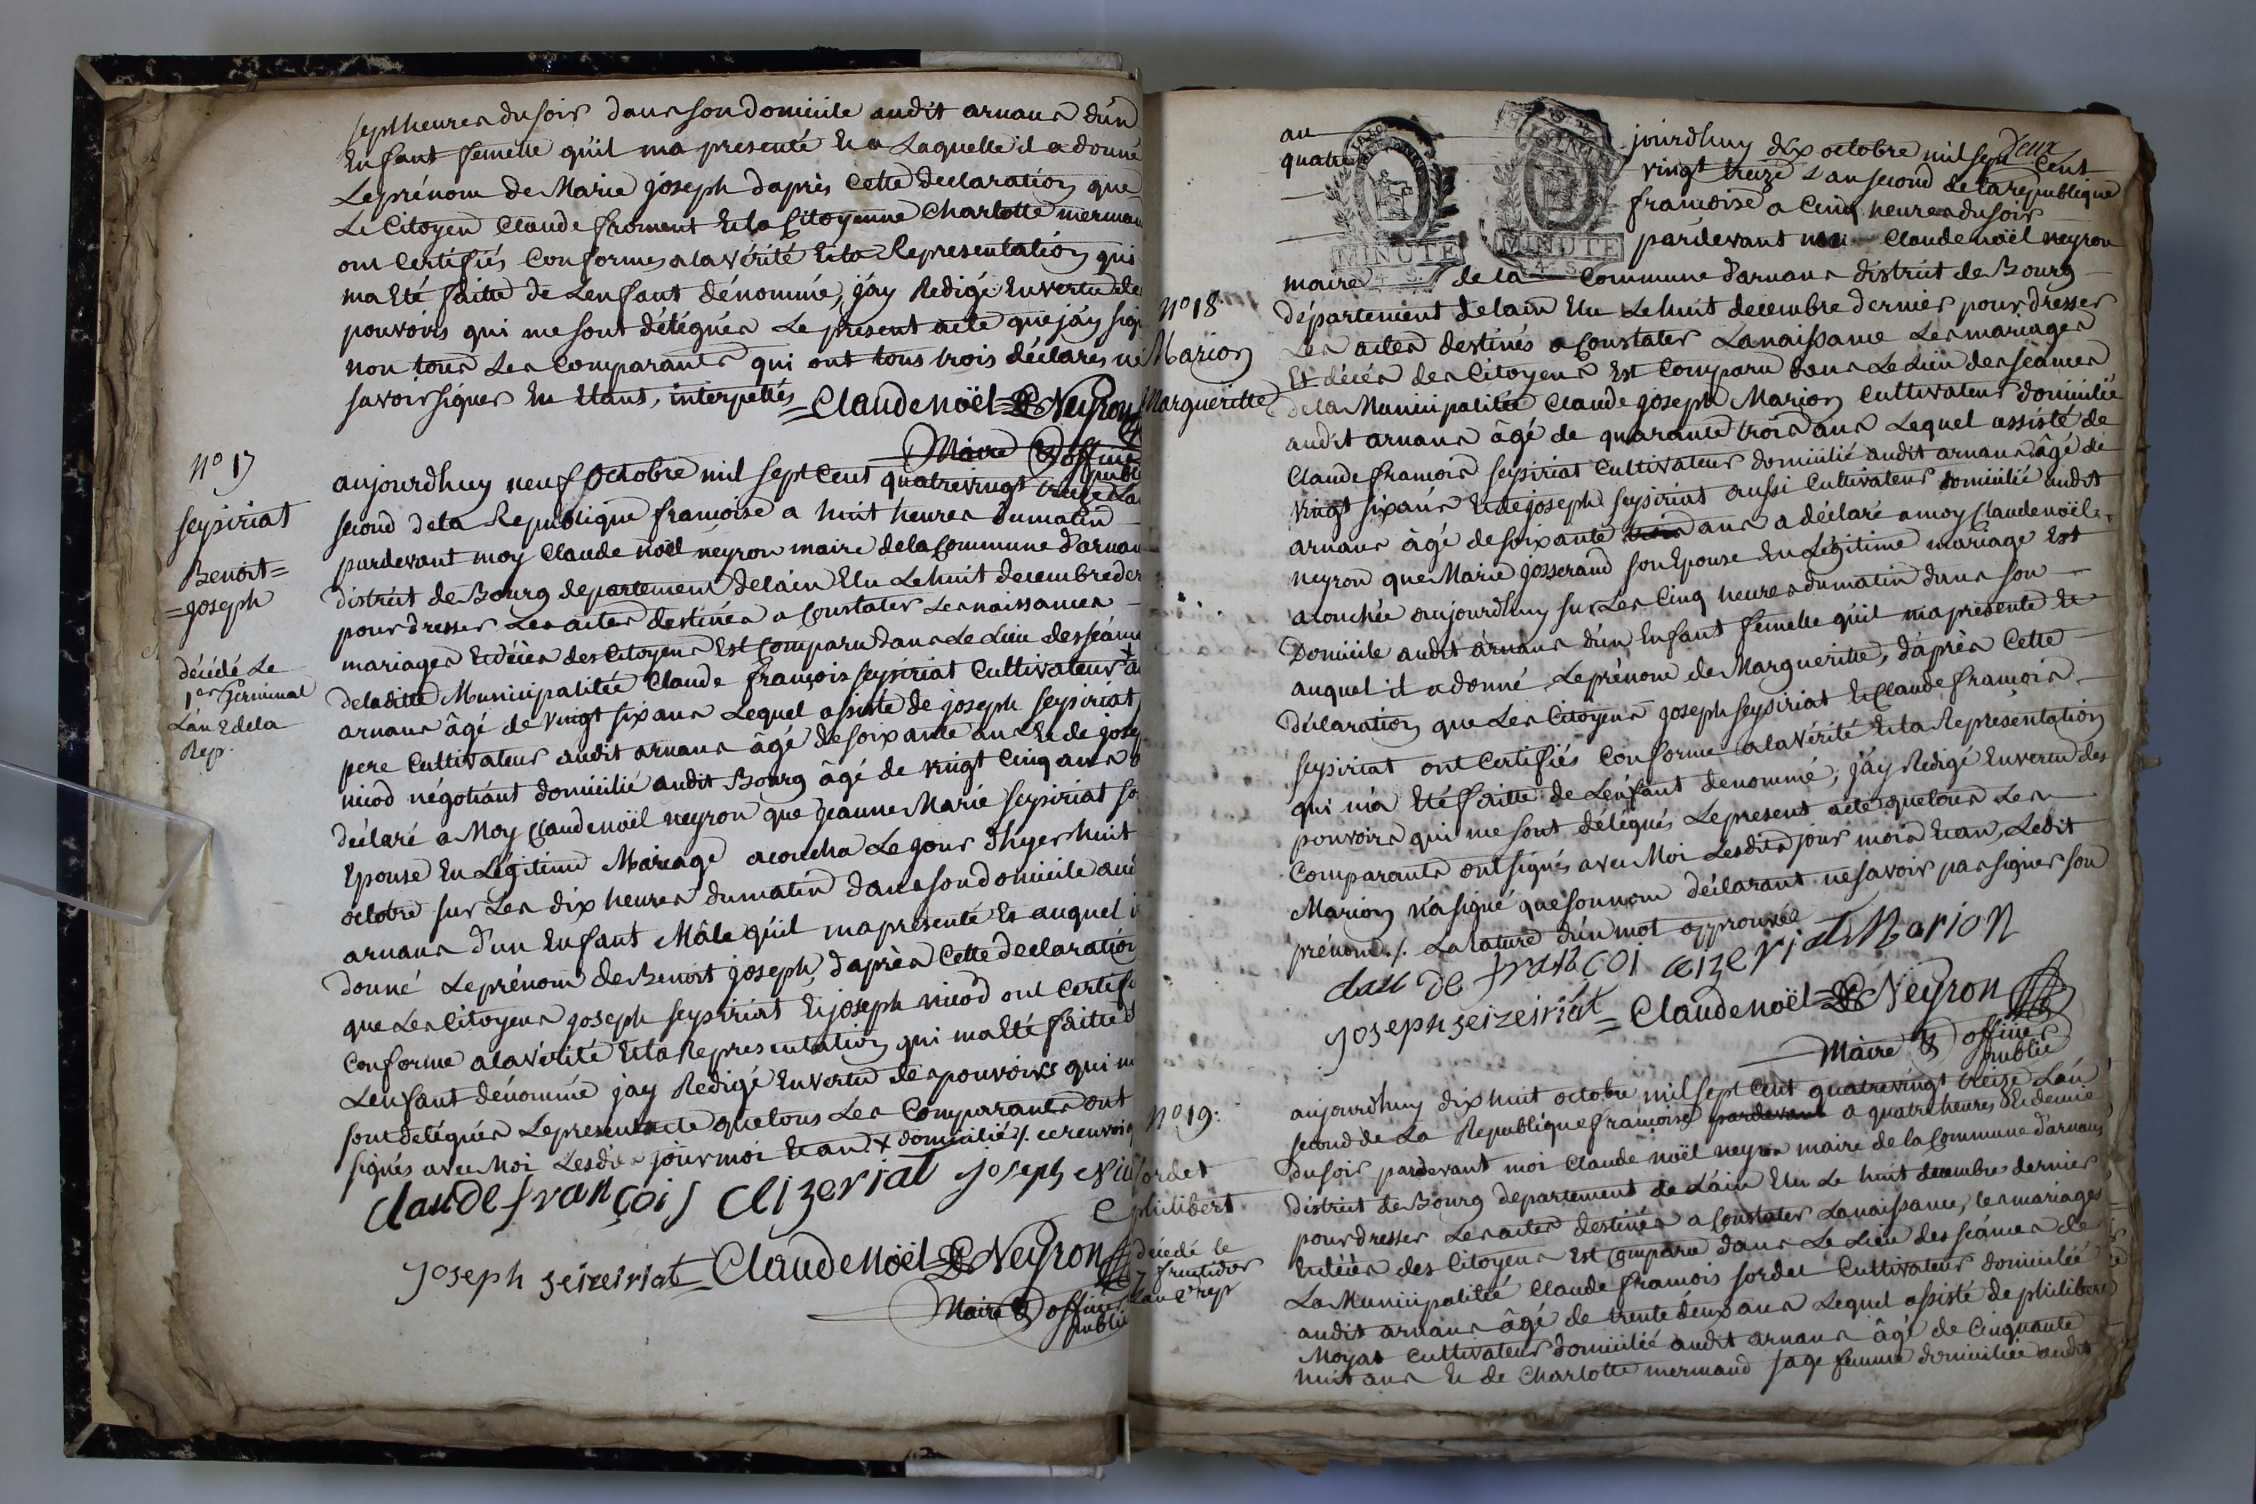 sept heures du soir dans son domicile audit arnans d'un
Enfant femelle qu'il ma presenté Et a Laquelle il a donné
Le prénom de Marie joseph d'après Cette declaration que
Le Citoyen Claude froment Et la Citoyenne Charlotte merman
ont Certifiés Conformes a la vérité Et la Representation qui
ma Eté faitte de Lenfant dénommé, j'ay Redigé En vertu des
pouvoirs qui me sont délégués Le present acte que j'ay sig
non tous Les Comparants qui ont tous trois déclarés ne
savoir signer En Etant, interpellés
=Claude Noël=Neyron
Maire & officier
public
N° 17
seysiriat
Benoit=
=joseph
décédé Le
1er germinal
L'an 2 de la
Rep.
aujourdhuy neuf Octobre mil sept Cent quatrevingt treize L'an
second de la Republique francoise a huit heures du matin
pardevant moy Claude noël neyron maire de la Commune d'arnan
district de Bourg departement de lain Elu Le huit decembre der
pour dresser Les actes destinés a Constater Les naissances
mariages Et décès des Citoyens Est Comparu dans Le Lieu des séanc
de la ditte Municipalitée Claude françois seysiriat Cultivateur
arnans âgé de vingt six ans Lequel assisté de joseph seysiriat
pere Cultivateur audit arnans âgé de soixante ans Et de jose
nicod négotiant domicilié audit Bourg âgé de vingt Cinq ans
déclaré a Moy Claude noël neyron que jeanne Marie seysiriat so
Epouse En Légitime Mariage acoucha Le jour d'hyer huit
octobre sur Les dix heures du matin dans son domicile aud
arnans d'un Enfant Mâle qu'il ma presenté Et auquel i
donné Le prénom de Benoit joseph, d'après Cette declaration
que Les Citoyens joseph seysiriat Et joseph nicod ont Certifi
Conforme a la vérité Et la Representation qui ma Eté faitte d
Lenfant dénommé jay Redigé En vertu des pouvoirs qui m
sont delégués Le present acte que tous Les Comparants ont
signés avec Moi Lesdits jour moi Et an. + domicilié /. ce renvoi
Claude françois Cizeriat joseph Nico
joseph seizeiriat = Claude Noël = Neyron
Maire & officier
public
au
quatre
MINUTE
4 S.
MINUTE
4 S.
deux
jourdhuy dix octobre mil sept Cent
vingt treize L'an second de la republique
francoise a Cinq heures du soir
pardevant moi Claude noël neyron
maire de la Commune d'arnans district de Bourg
département de lain Elu Le huit decembre dernier pour dresser
Les actes destinés a Constater La naissance Les mariages
Et décès des Citoyens Est Comparu dans Le Lieu des séances
de la Municipalitée Claude joseph Marion Cultivateur domicilié
audit arnans âgé de quarante trois ans Lequel assisté de
Claude francois seysiriat Cultivateur domicilié audit arnans âgé de
vingt six ans Et de joseph seysiriat aussi Cultivateur domicilié audit
arnans âgé de soixante ans a déclaré a moy Claude noël
neyron que Marie josserand son Epouse En Légitime mariage Est
acouchée aujourdhuy sur Les Cinq heures du matin dans son
Domicile audit arnans d'un Enfant femelle qu'il ma presenté Et
auquel il a donné Le prénom de Margueritte, d'après Cette
déclaration que Les Citoyens joseph seysiriat Et Claude francois
seysiriat ont Certifiés Conforme a la vérité Et la Représentation
qui m'a Eté faitte de L'enfant denommé, j'ay Redigé En vertu des
pouvoirs qui me sont délégués Le present acte que tous Les
Comparants ont signés avec Moi Lesdits jour mois Et an, Ledit
Marion n'a signé que son nom déclarant ne savoir pas signer son
prénom /. La rature d'un mot approuvée
claude françoi cizeriat Marion
joseph seizeiriat = Claude Noël = Neyron
Maire & officier
public
N° 18
Marion
Margueritte
aujourdhuy dix huit octobre mil sept Cent quatrevingt treize L'an
second de La Republique francoise pardevant a quatre heures Et demie
du soir pardevant moi Claude noël neyron maire de la Commune d'arnans
district de Bourg departement de L'ain Elu Le huit decembre dernier
pour dresser Les actes destinés a Constater La naissance, les mariages
Et décès des Citoyens Est Comparu dans Le Lieu des séances de
La Municipalitée Claude francois sordet Cultivateur domicilié
audit arnans âgé de trente deux ans Lequel assisté de philibert
Moyat cultivateur domicilié audit arnans âgé de Cinquante
huit ans Et de Charlotte mermand sage femme domiciliée audit
N° 19:
sordet
philibert
décedé le
7 fructidor
L'an 2e rep